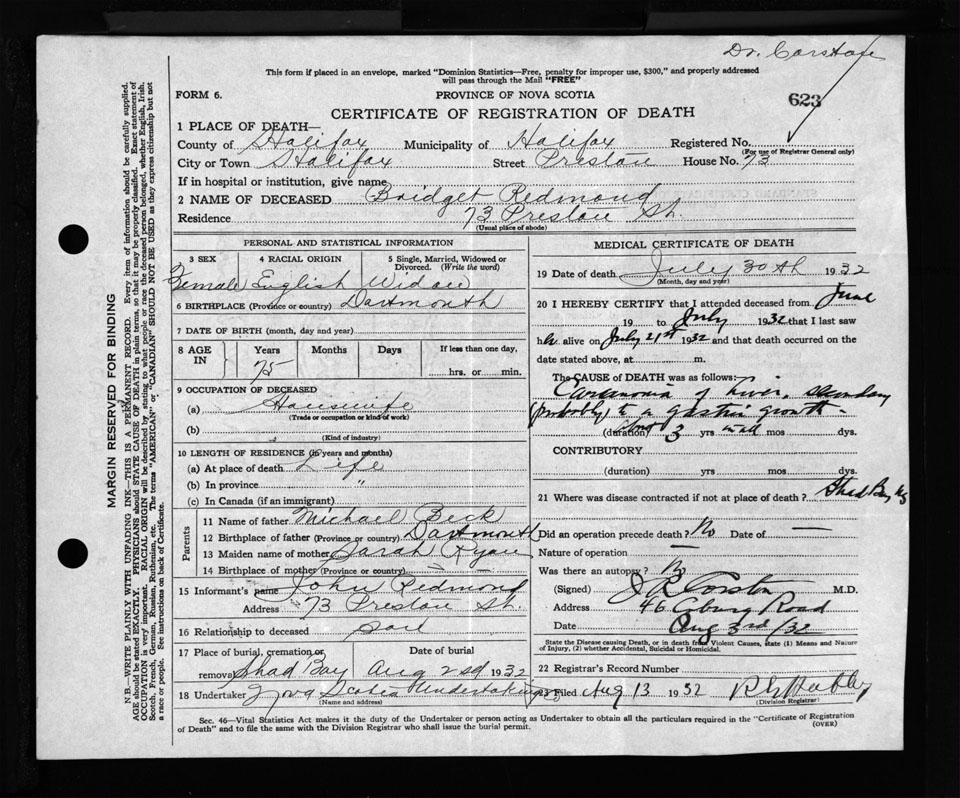 Dr. Corston
This form if placed in an envelope, marked "Dominion Statistics—Free, penalty for improper use, $300," and properly addressed
will pass through the Mail "FREE"
FORM 6.
PROVINCE OF NOVA SCOTIA
623
CERTIFICATE OF REGISTRATION OF DEATH
1 PLACE OF DEATH—
County of Halifax Municipality of Halifax Registered No.
(For use of Registrar General only)
City or Town Halifax Street Preston House No. 73
If in hospital or institution, give name
2 NAME OF DECEASED Bridget Redmond
Residence 73 Preston St.
(Usual place of abode)
MARGIN RESERVED FOR BINDING
N.B.—WRITE PLAINLY WITH UNFADING INK—THIS IS A PERMANENT RECORD. Every item of information should be carefully supplied.
AGE should be stated EXACTLY. PHYSICIANS should STATE CAUSE OF DEATH in plain terms, so that it may be properly classified. Exact statement of
OCCUPATION is very important. RACIAL ORIGIN will be described by stating to what people or race the deceased person belonged, whether English, Irish,
Scotch, French, German, Russian, Ruthenian, etc. The terms "AMERICAN" or "CANADIAN" SHOULD NOT BE USED as they express citizenship but not
a race or people. See instructions on back of Certificate.
PERSONAL AND STATISTICAL INFORMATION
3 SEX 4 RACIAL ORIGIN 5 Single, Married, Widowed or
Divorced. (Write the word)
Female English Widow
6 BIRTHPLACE (Province or country) Dartmouth
7 DATE OF BIRTH (month, day and year)
8 AGE IN Years Months Days If less than one day,
75 hrs. or min.
9 OCCUPATION OF DECEASED
(a) Housewife
(Trade or occupation or kind of work)
(b)
(Kind of industry)
10 LENGTH OF RESIDENCE (in years and months)
(a) At place of death Life
(b) In province "
(c) In Canada (if an immigrant)
Parents
11 Name of father Michael Beck
12 Birthplace of father (Province or country) Dartmouth
13 Maiden name of mother Sarah Ryan
14 Birthplace of mother (Province or country) —
15 Informant's name John Redmond
Address 73 Preston St.
16 Relationship to deceased son
17 Place of burial, cremation or removal Shad Bay Date of burial Aug 2nd 1932
18 Undertaker Nova Scotia Undertaking
(Name and address)
MEDICAL CERTIFICATE OF DEATH
19 Date of death July 30th 1932
(Month, day and year)
20 I HEREBY CERTIFY that I attended deceased from June
19 to July 1932 that I last saw
her alive on July 21st 1932 and that death occurred on the
date stated above, at m.
The CAUSE OF DEATH was as follows:
Carcinoma of Liver, secondary
(probably) to a gastric growth—
(duration) about 3 yrs in all mos dys.
CONTRIBUTORY
(duration) yrs mos dys.
21 Where was disease contracted if not at place of death? Shad Bay NS
Did an operation precede death? No Date of —
Nature of operation —
Was there an autopsy? No
(Signed) J R Corston M.D.
Address 46 Coburg Road
Date Aug 3rd/32
State the Disease causing Death, or in death from Violent Causes, state (1) Means and Nature
of Injury, (2) whether Accidental, Suicidal or Homicidal.
22 Registrar's Record Number
Filed Aug 13 1932
(Division Registrar)
Sec. 46—Vital Statistics Act makes it the duty of the Undertaker or person acting as Undertaker to obtain all the particulars required in the "Certificate of Registration
of Death" and to file the same with the Division Registrar who shall issue the burial permit.
(OVER)